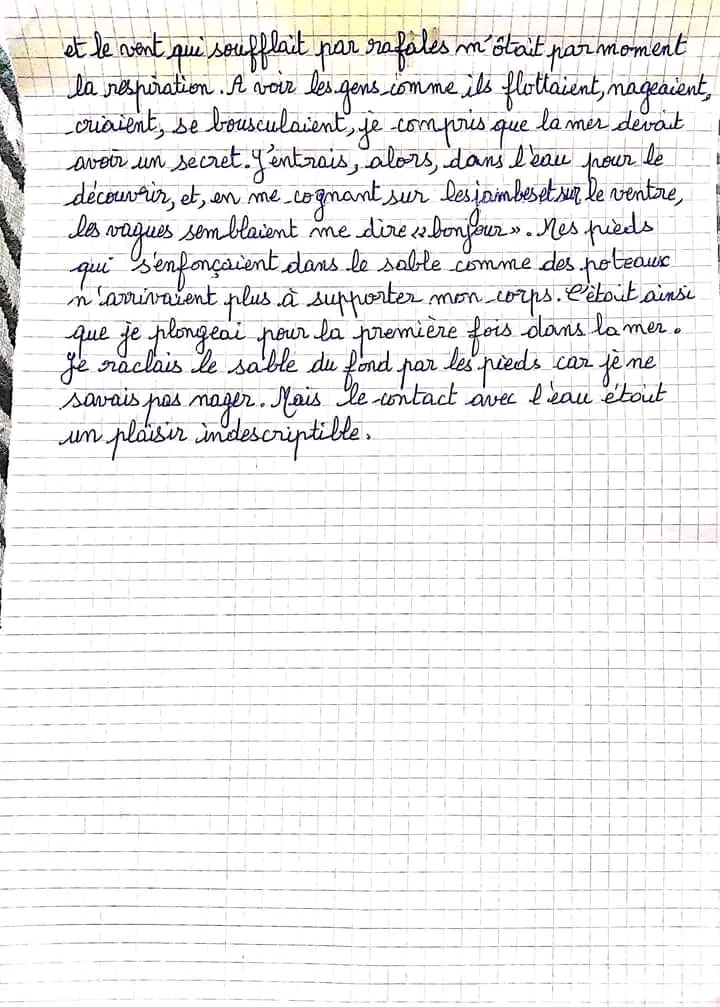 et le vent qui soufflait par rafales m'ôtait par moment
la respiration. A voir les gens comme ils flottaient, nageaient,
criaient, se bousculaient, je compris que la mer devait
avoir un secret. J'entrais, alors, dans l'eau pour le
découvrir, et, en me cognant sur les jambes et sur le ventre,
les vagues semblaient me dire « bonjour ». Mes pieds
qui s'enfonçaient dans le sable comme des poteaux
n'arrivaient plus à supporter mon corps. C'était ainsi
que je plongeai pour la première fois dans la mer.
Je raclais le sable du fond par les pieds car je ne
savais pas nager. Mais le contact avec l'eau était
un plaisir indescriptible.